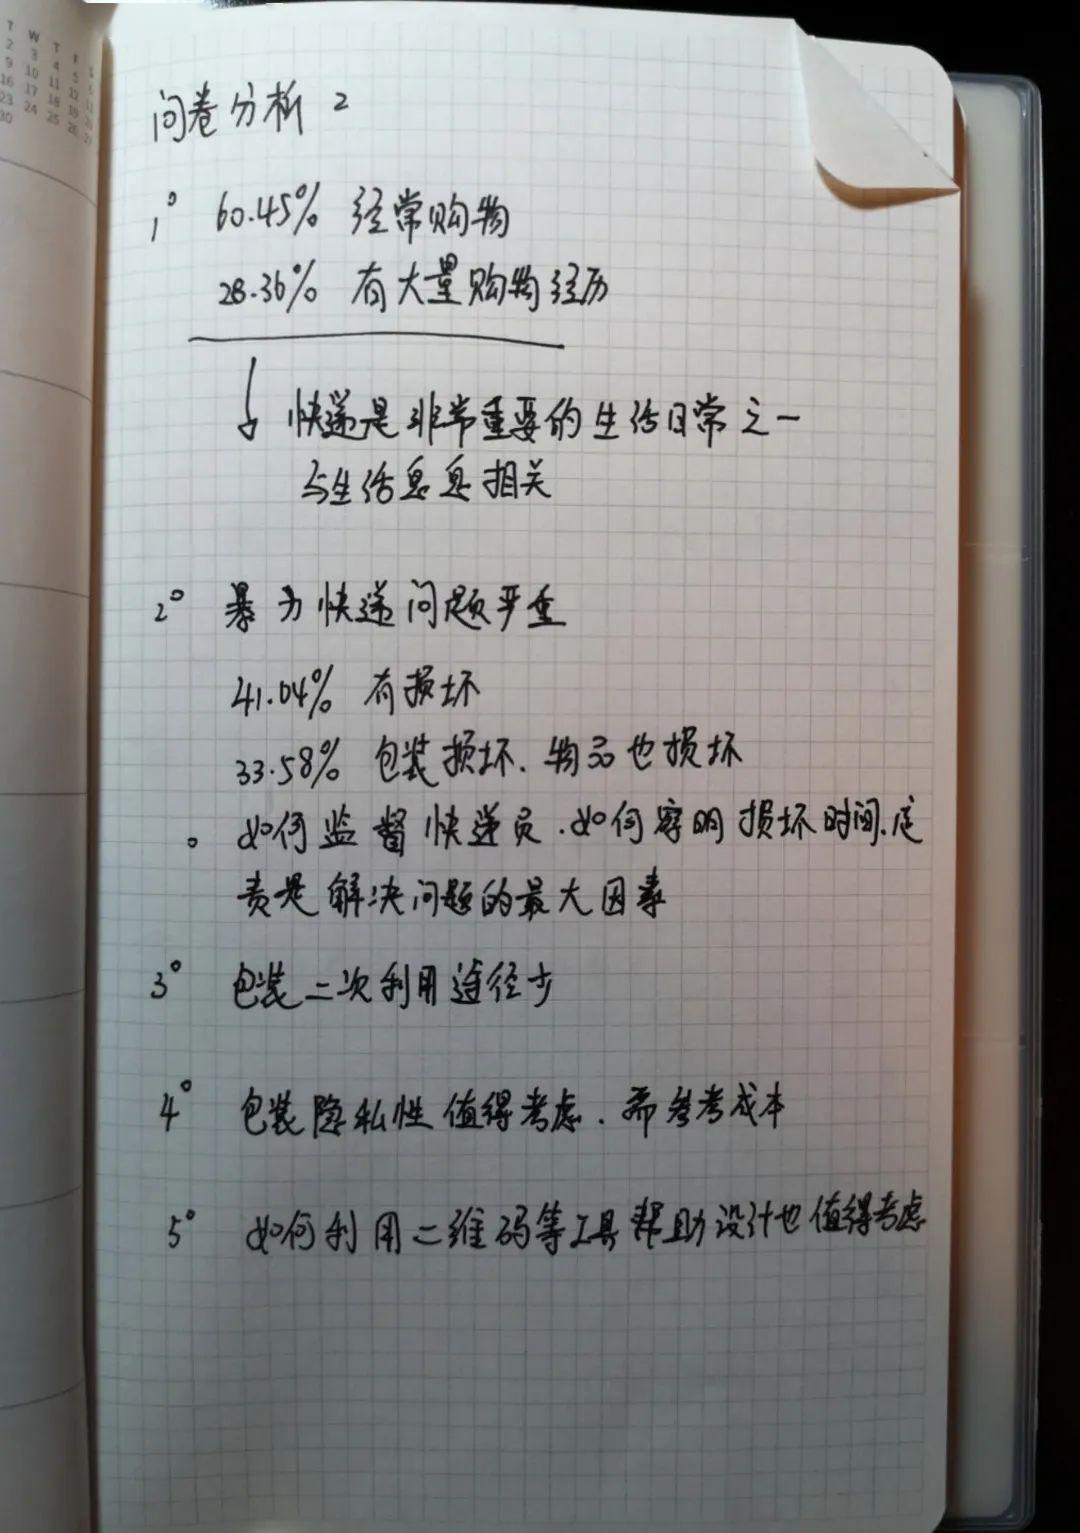 T W T F S
2 3 4 5 6
9 10 11 12
16 17 18 19
23 24 25 26 27
30
问卷分析 2
1° 60.45% 经常购物
28.36% 有大量购物经历
快递是非常重要的生活日常之一
与生活息息相关
2° 暴力快递问题严重
41.04% 有损坏
33.58% 包装损坏、物品也损坏
。如何监督快递员、如何察明损坏时间、定
责是解决问题的最大因素
3° 包装二次利用途径少
4° 包装隐私性值得考虑、需参考成本
5° 如何利用二维码等工具帮助设计也值得考虑